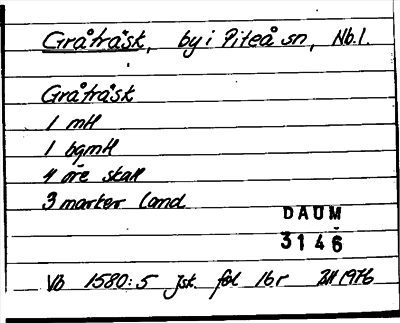 Gråträsk, by i Piteå sn, Nb.l.
Gråträsk
1 mH
1 bgmH
4 öre skatt
3 marker land
DAUM
3146
Vb 1580:5 Jsk. fol 16r ZH 1976